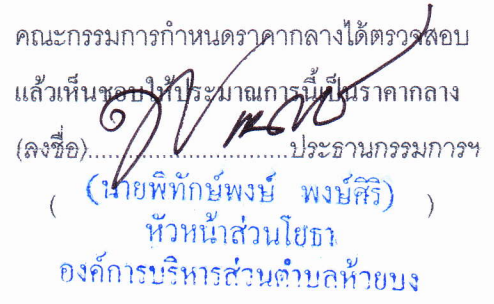 คณะกรรมการกำหนดราคากลางได้ตรวจสอบ
แล้วเห็นชอบให้ประมาณการนี้เป็นราคากลาง
(ลงชื่อ)..............................ประธานกรรมการฯ
( (นายพิทักษ์พงษ์ พงษ์ศิริ) )
หัวหน้าส่วนโยธา
องค์การบริหารส่วนตำบลห้วยบง